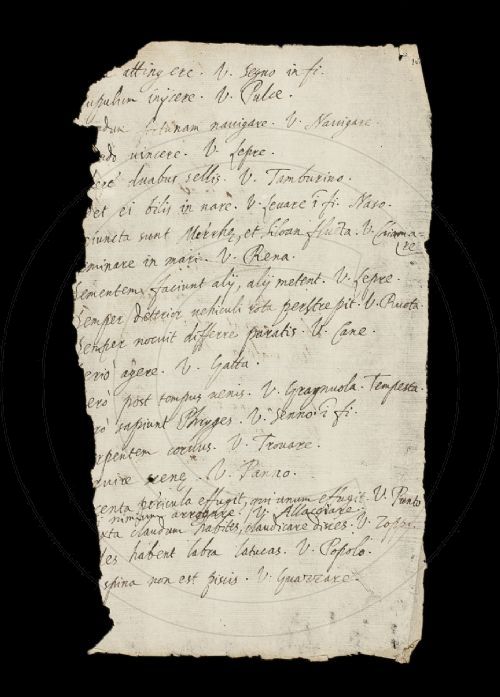 attingere. V. Segno in fi.
upulum injcere. V. Pulce.
fortunam navigare. V. Navigare.
vincere. V. Lepre.
dere duabus sellis. V. Tamburino.
et ei bilis in nare. V. Levare i fi. Naso.
iuncta sunt et V.
eminare in mari. V. Rena.
Sementem faciunt alij, alij metent. V. Lepre.
Semper deterior vehiculi rota perstrepit. V. Ruota
Semper nocuit differre paratis. V. Cane.
erio agere. V. Gatta.
ero post tempus venis. V. Gragnuola. Tempesta.
ro sapiunt Phryges. V. Senno i fi.
erpentem corvus. V. Trovare.
V. Panno.
enta pericula effugit, qui unum effugit. V. Punto
nimium arrogare. V. Allacciare.
xta claudum habites, claudicare disces. V. Zoppo.
les habent labra latucas. V. Popolo.
spina non est piscis. V. Guazzare.